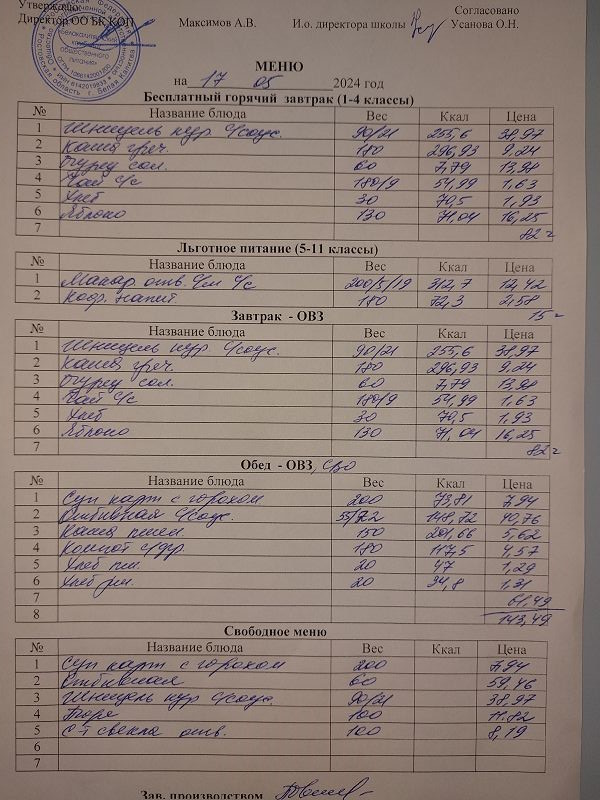 Утверждаю
Согласовано
Директор ОО БК КОП Максимов А.В. И.о. директора школы Усанова О.Н.
МЕНЮ
на 17 05 2024 год
Бесплатный горячий завтрак (1-4 классы)
№ Название блюда Вес Ккал Цена
1 Шницель кур с/соус. 90/21 255,6 38,97
2 Каша греч. 180 296,93 9,24
3 Огурец сол. 60 7,79 13,98
4 Чай с/с 180/9 54,99 1,63
5 Хлеб 30 70,5 1,93
6 Яблоко 130 71,04 16,25
7 82=
Льготное питание (5-11 классы)
№ Название блюда Вес Ккал Цена
1 Макар. отв. с/м с/с 200/5/19 312,7 12,42
2 Коф. напит 180 72,3 2,58
15=
Завтрак - ОВЗ
№ Название блюда Вес Ккал Цена
1 Шницель кур с/соус. 90/21 255,6 38,97
2 Каша греч. 180 296,93 9,24
3 Огурец сол. 60 7,79 13,98
4 Чай с/с 180/9 54,99 1,63
5 Хлеб 30 70,5 1,93
6 Яблоко 130 71,04 16,25
7 82=
Обед - ОВЗ, СВО
№ Название блюда Вес Ккал Цена
1 Суп карт с горохом 200 73,81 7,94
2 Отбивная с/соус. 148,72 40,76
3 Каша пшен. 150 201,66 5,62
4 Компот с/фр. 180 117,5 4,57
5 Хлеб пш. 20 47 1,29
6 Хлеб рж. 20 34,8 1,31
7 61,49
8 143,49
Свободное меню
№ Название блюда Вес Ккал Цена
1 Суп карт с горохом 200 7,94
2 Отбивная 60 59,46
3 Шницель кур с/соус 90/21 38,97
4 Пюре 100 11.82
5 С-т свекла отв. 100 8,19
6
7
Зав. производством